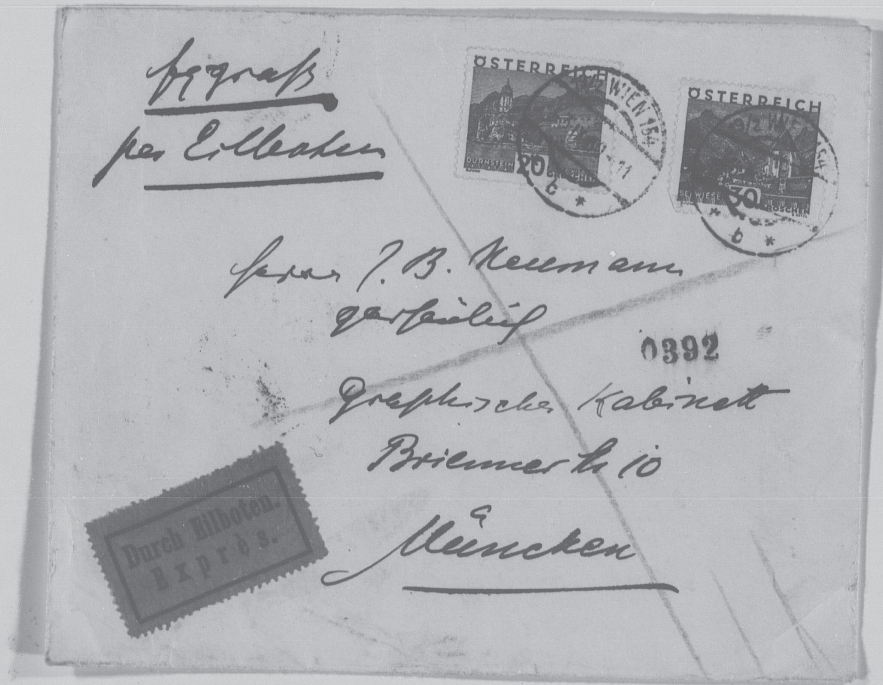 Expreß
per Eilboten
ÖSTERREICH
DÜRNSTEIN
20 GROSCHEN
WIEN 154
b *
ÖSTERREICH
30 GROSCHEN
WIEN
* b *
Herrn J. B. Neumann
persönlich
0392
Graphisches Kabinett
Briennerstr 10
München
Durch Eilboten.
Exprès.